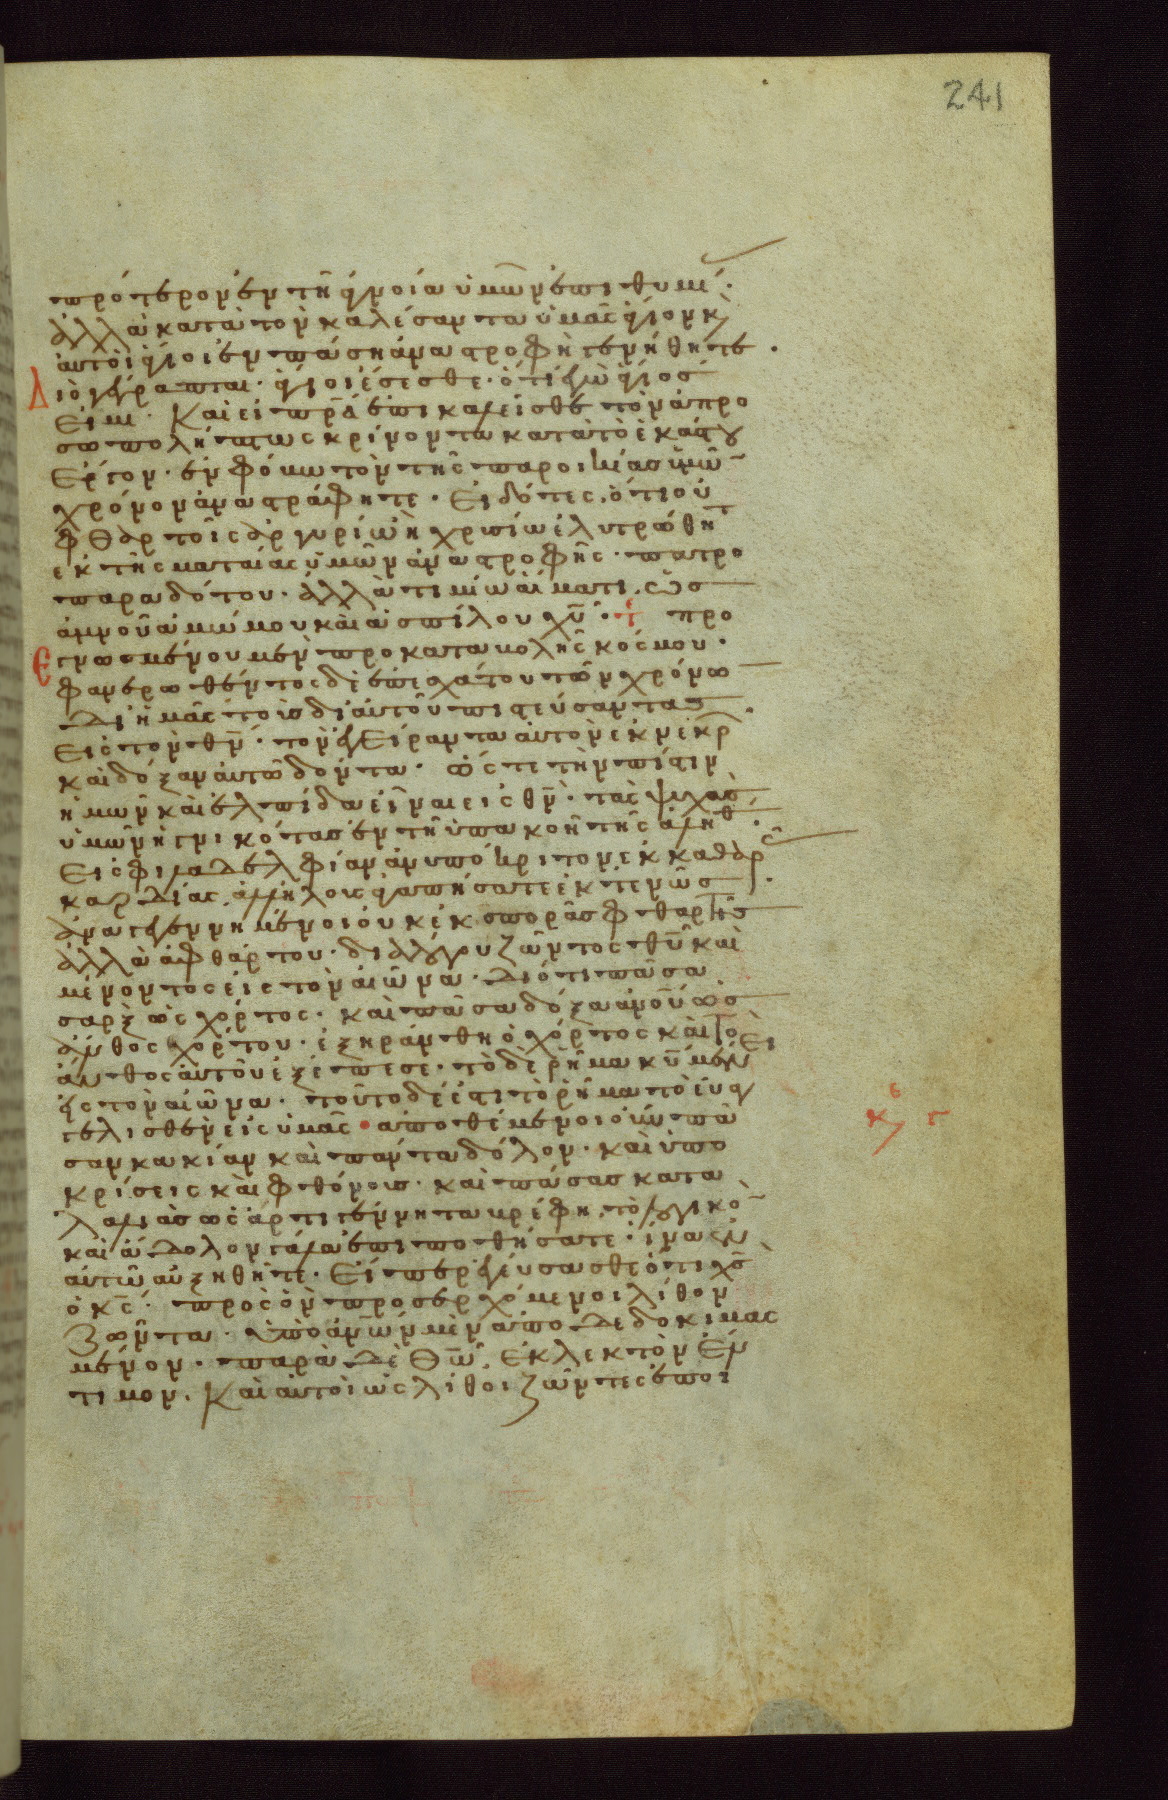 241
πρότερον ἐν τῆ ἀγνοία ὑμῶν ἐπιθυμί.
ἀλλὰ κατὰ τὸν καλέσαντα ὑμᾶς ἅγιον κ
αὐτοὶ ἅγιοι ἐν πάση ἀναστροφῆ γενήθητε.
Διὸ γέγραπται. ἅγιοι ἔσεσθε. ὅτι ἐγὼ ἅγιος
εἰμι. Καὶ εἰ πρα ἐπικαλεῖσθε τὸν ἀπρο
σωπολήπτως κρίνοντα κατὰ τὸ ἑκάστου
ἔργον. ἐν φόβω τὸν τῆς παροικίας ὑμῶ
χρόνον ἀναστράφητε. Εἰδότες, ὅτι οὐ
φθαρτοῖς ἀργυρίω ἢ χρυσίω ἐλυτρώθητ
ἐκ τῆς ματαίας ὑμῶν ἀναστροφῆς. πατρο
παραδότου. ἀλλὰ τιμίω αἵματι, ὡς
ἀμνοῦ ἀμώμου καὶ ἀσπίλου χυ. προ
εγνωσμένου μὲν προ καταβολῆς κόσμου.
φανερωθέντος δὲ ἐπ' ἐσχάτου τῶν χρόνω
δι' ἡμᾶς τοὺς δι' αὐτοῦ πιστεύσαντας
εἰς τὸν θν. τὸν ἐγείραντα αὐτὸν ἐκ νεκρ
καὶ δόξαν αὐτῶ δόντα. ὥστε τὴν πίστιν
ἡμῶν καὶ ἐλπίδα εἶναι εἰς θν. τὰς ψυχὰς
ὑμῶν ἡγνικότας ἐν τῆ ὑπακοῆ τῆς ἀληθ.
Εἰς φιλαδελφίαν ἀνυπόκριτον ἐκ καθαρᾶς
καρδίας, ἀλλήλους ἀγαπήσατε ἐκτενῶς.
ἀναγεγεννημένοι οὐκ ἐκ σπορᾶς φθαρτῆς
ἀλλὰ ἀφθάρτου. διὰ λόγου ζῶντος θυ καὶ
μένοντος εἰς τὸν αἰῶνα. Διότι πᾶσα
σὰρξ ὡς χόρτος. καὶ πᾶσα δόξα ἀνου ὡς
ἄνθος χόρτου. ἐξηράνθη ὁ χόρτος καὶ τὸ
ἄνθος αὐτοῦ ἐξέπεσε. τὸ δὲ ρῆμα κυ μένει
εἰς τὸν αἰῶνα. τοῦτο δέ ἐστι τὸ ρῆμα τὸ εὐαγ
γελισθὲν εἰς ὑμᾶς. ἀποθέμενοι οὖν πᾶ
σαν κακίαν καὶ πάντα δόλον. καὶ ὑπο
κρίσεις καὶ φθόνους. καὶ πάσας κατα
λαλιὰς ὡς ἀρτιγέννητα βρέφη, τὸ λογικὸ
καὶ ἄδολον γάλα ἐπιποθήσατε. ἵνα ἐν
αὐτῶ αὐξηθῆτε. Εἴπερ ἐγεύσασθε ὅτι χς
ὁ κς. πρὸς ὃν προσερχόμενοι λίθον
ζῶντα. ὑπὸ ἀνων μὲν ἀποδεδοκιμας
μένον. παρὰ δὲ θω, ἐκλεκτὸν ἔν
τιμον. Καὶ αὐτοὶ ὡς λίθοι ζῶντες ἐποι